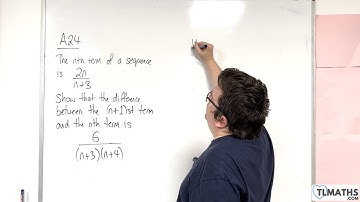 A24
The nth term of a sequence
is 2n
n+3
Show that the difference
between the (n+1)st term
and the nth term is
6
(n+3)(n+4)
TLMATHS